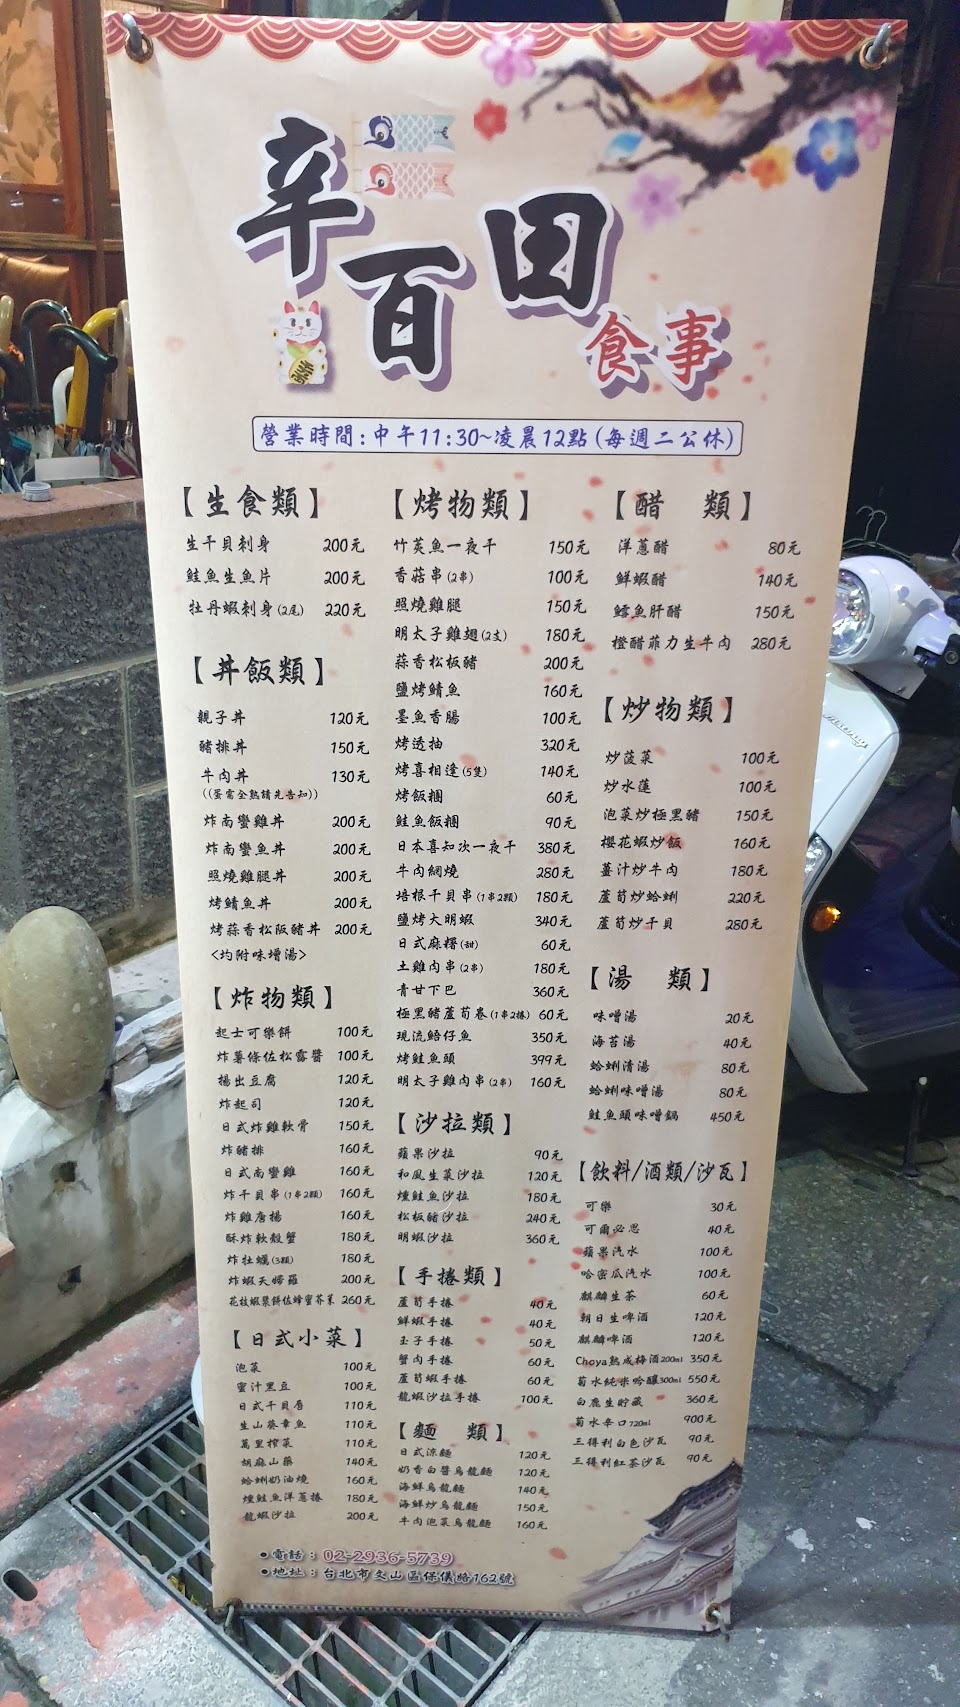 辛百田
食事
營業時間:中午11:30~凌晨12點(每週二公休)
【生食類】
生干貝刺身 200元
鮭魚生魚片 200元
牡丹蝦刺身(2尾) 220元
【丼飯類】
親子丼 120元
豬排丼 150元
牛肉丼 130元
((蛋需全熟請先告知))
炸南蠻雞丼 200元
炸南蠻魚丼 200元
照燒雞腿丼 200元
烤鯖魚丼 200元
烤蒜香松阪豬丼 200元
<均附味增湯>
【炸物類】
起士可樂餅 100元
炸薯條佐松露醬 100元
揚出豆腐 120元
炸起司 120元
日式炸雞軟骨 150元
炸豬排 160元
日式南蠻雞 160元
炸干貝串(1串2顆) 160元
炸雞唐揚 160元
酥炸軟殼蟹 180元
炸牡蠣(3顆) 180元
炸蝦天婦羅 200元
花枝蝦漿餅佐蜂蜜芥茉 260元
【日式小菜】
泡菜 100元
蜜汁黑豆 100元
日式干貝唇 110元
生山葵章魚 110元
萬里榨菜 110元
胡麻山藥 140元
蛤蜊奶油燒 160元
燻鮭魚洋蔥捲 180元
龍蝦沙拉 200元
【烤物類】
竹莢魚一夜干 150元
香菇串(2串) 100元
照燒雞腿 150元
明太子雞翅(2支) 180元
蒜香松板豬 200元
鹽烤鯖魚 160元
墨魚香腸 100元
烤透抽 320元
烤喜相逢(5隻) 140元
烤飯糰 60元
鮭魚飯糰 90元
日本喜知次一夜干 380元
牛肉網燒 280元
培根干貝串(1串2顆) 180元
鹽烤大明蝦 340元
日式麻糬(甜) 60元
土雞肉串(2串) 180元
青甘下巴 360元
極黑豬蘆筍卷(1串2捲) 60元
現流鮕仔魚 350元
烤鮭魚頭 399元
明太子雞肉串(2串) 160元
【沙拉類】
蘋果沙拉 90元
和風生菜沙拉 120元
燻鮭魚沙拉 180元
松板豬沙拉 240元
明蝦沙拉 360元
【手捲類】
蘆筍手捲 40元
鮮蝦手捲 40元
玉子手捲 50元
蟹肉手捲 60元
蘆筍蝦手捲 60元
龍蝦沙拉手捲 100元
【麵 類】
日式涼麵 120元
奶香白醬烏龍麵 120元
海鮮烏龍麵 140元
海鮮炒烏龍麵 150元
牛肉泡菜烏龍麵 160元
【醋 類】
洋蔥醋 80元
鮮蝦醋 140元
鱈魚肝醋 150元
橙醋菲力生牛肉 280元
【炒物類】
炒菠菜 100元
炒水蓮 100元
泡菜炒極黑豬 150元
櫻花蝦炒飯 160元
薑汁炒牛肉 180元
蘆筍炒蛤蜊 220元
蘆筍炒干貝 280元
【湯 類】
味噌湯 20元
海苔湯 40元
蛤蜊清湯 80元
蛤蜊味噌湯 80元
鮭魚頭味噌鍋 450元
【飲料/酒類/沙瓦】
可樂 30元
可爾必思 40元
蘋果汽水 100元
哈密瓜汽水 100元
麒麟生茶 60元
朝日生啤酒 120元
麒麟啤酒 120元
Choya熟成梅酒200ml 350元
菊水純米吟釀300ml 550元
白鹿生貯藏 360元
菊水辛口720ml 900元
三得利白色沙瓦 90元
三得利紅茶沙瓦 90元
●電話:02-2936-5739
●地址:台北市文山區保儀路162號